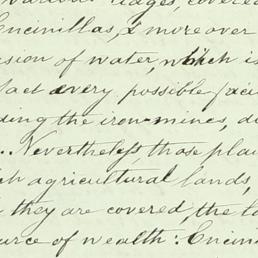 ridges, covered
Encinillas, & moreover
sion of water, which is
fact every possible faci
ding the iron-mines, di
. Nevertheless, those plai
ch agricultural lands,
they are covered, the ta
urce of wealth. Encini